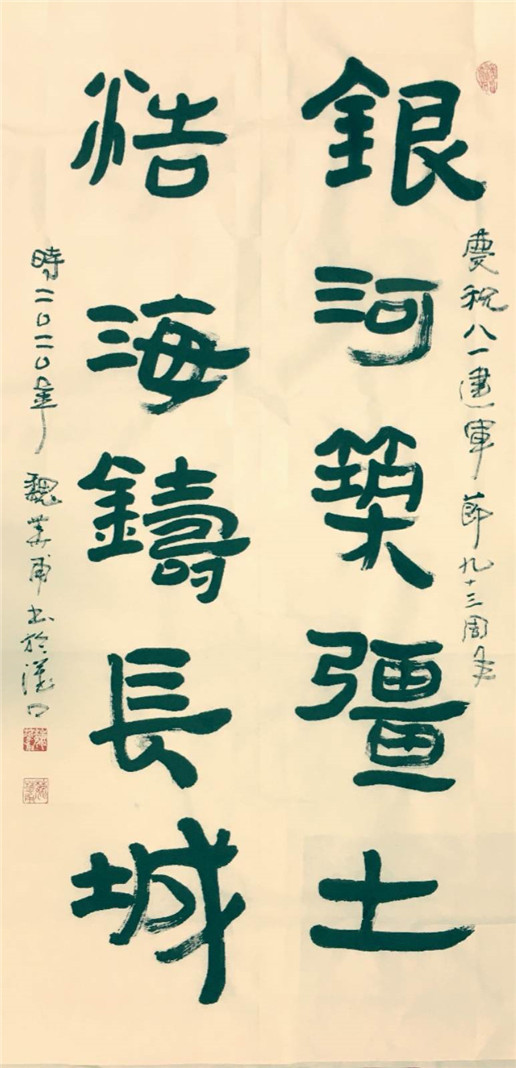 慶祝八一建軍節九十三周年
銀河築彊土
浩海鑄長城
時二〇二〇年 魏甫书於漢口